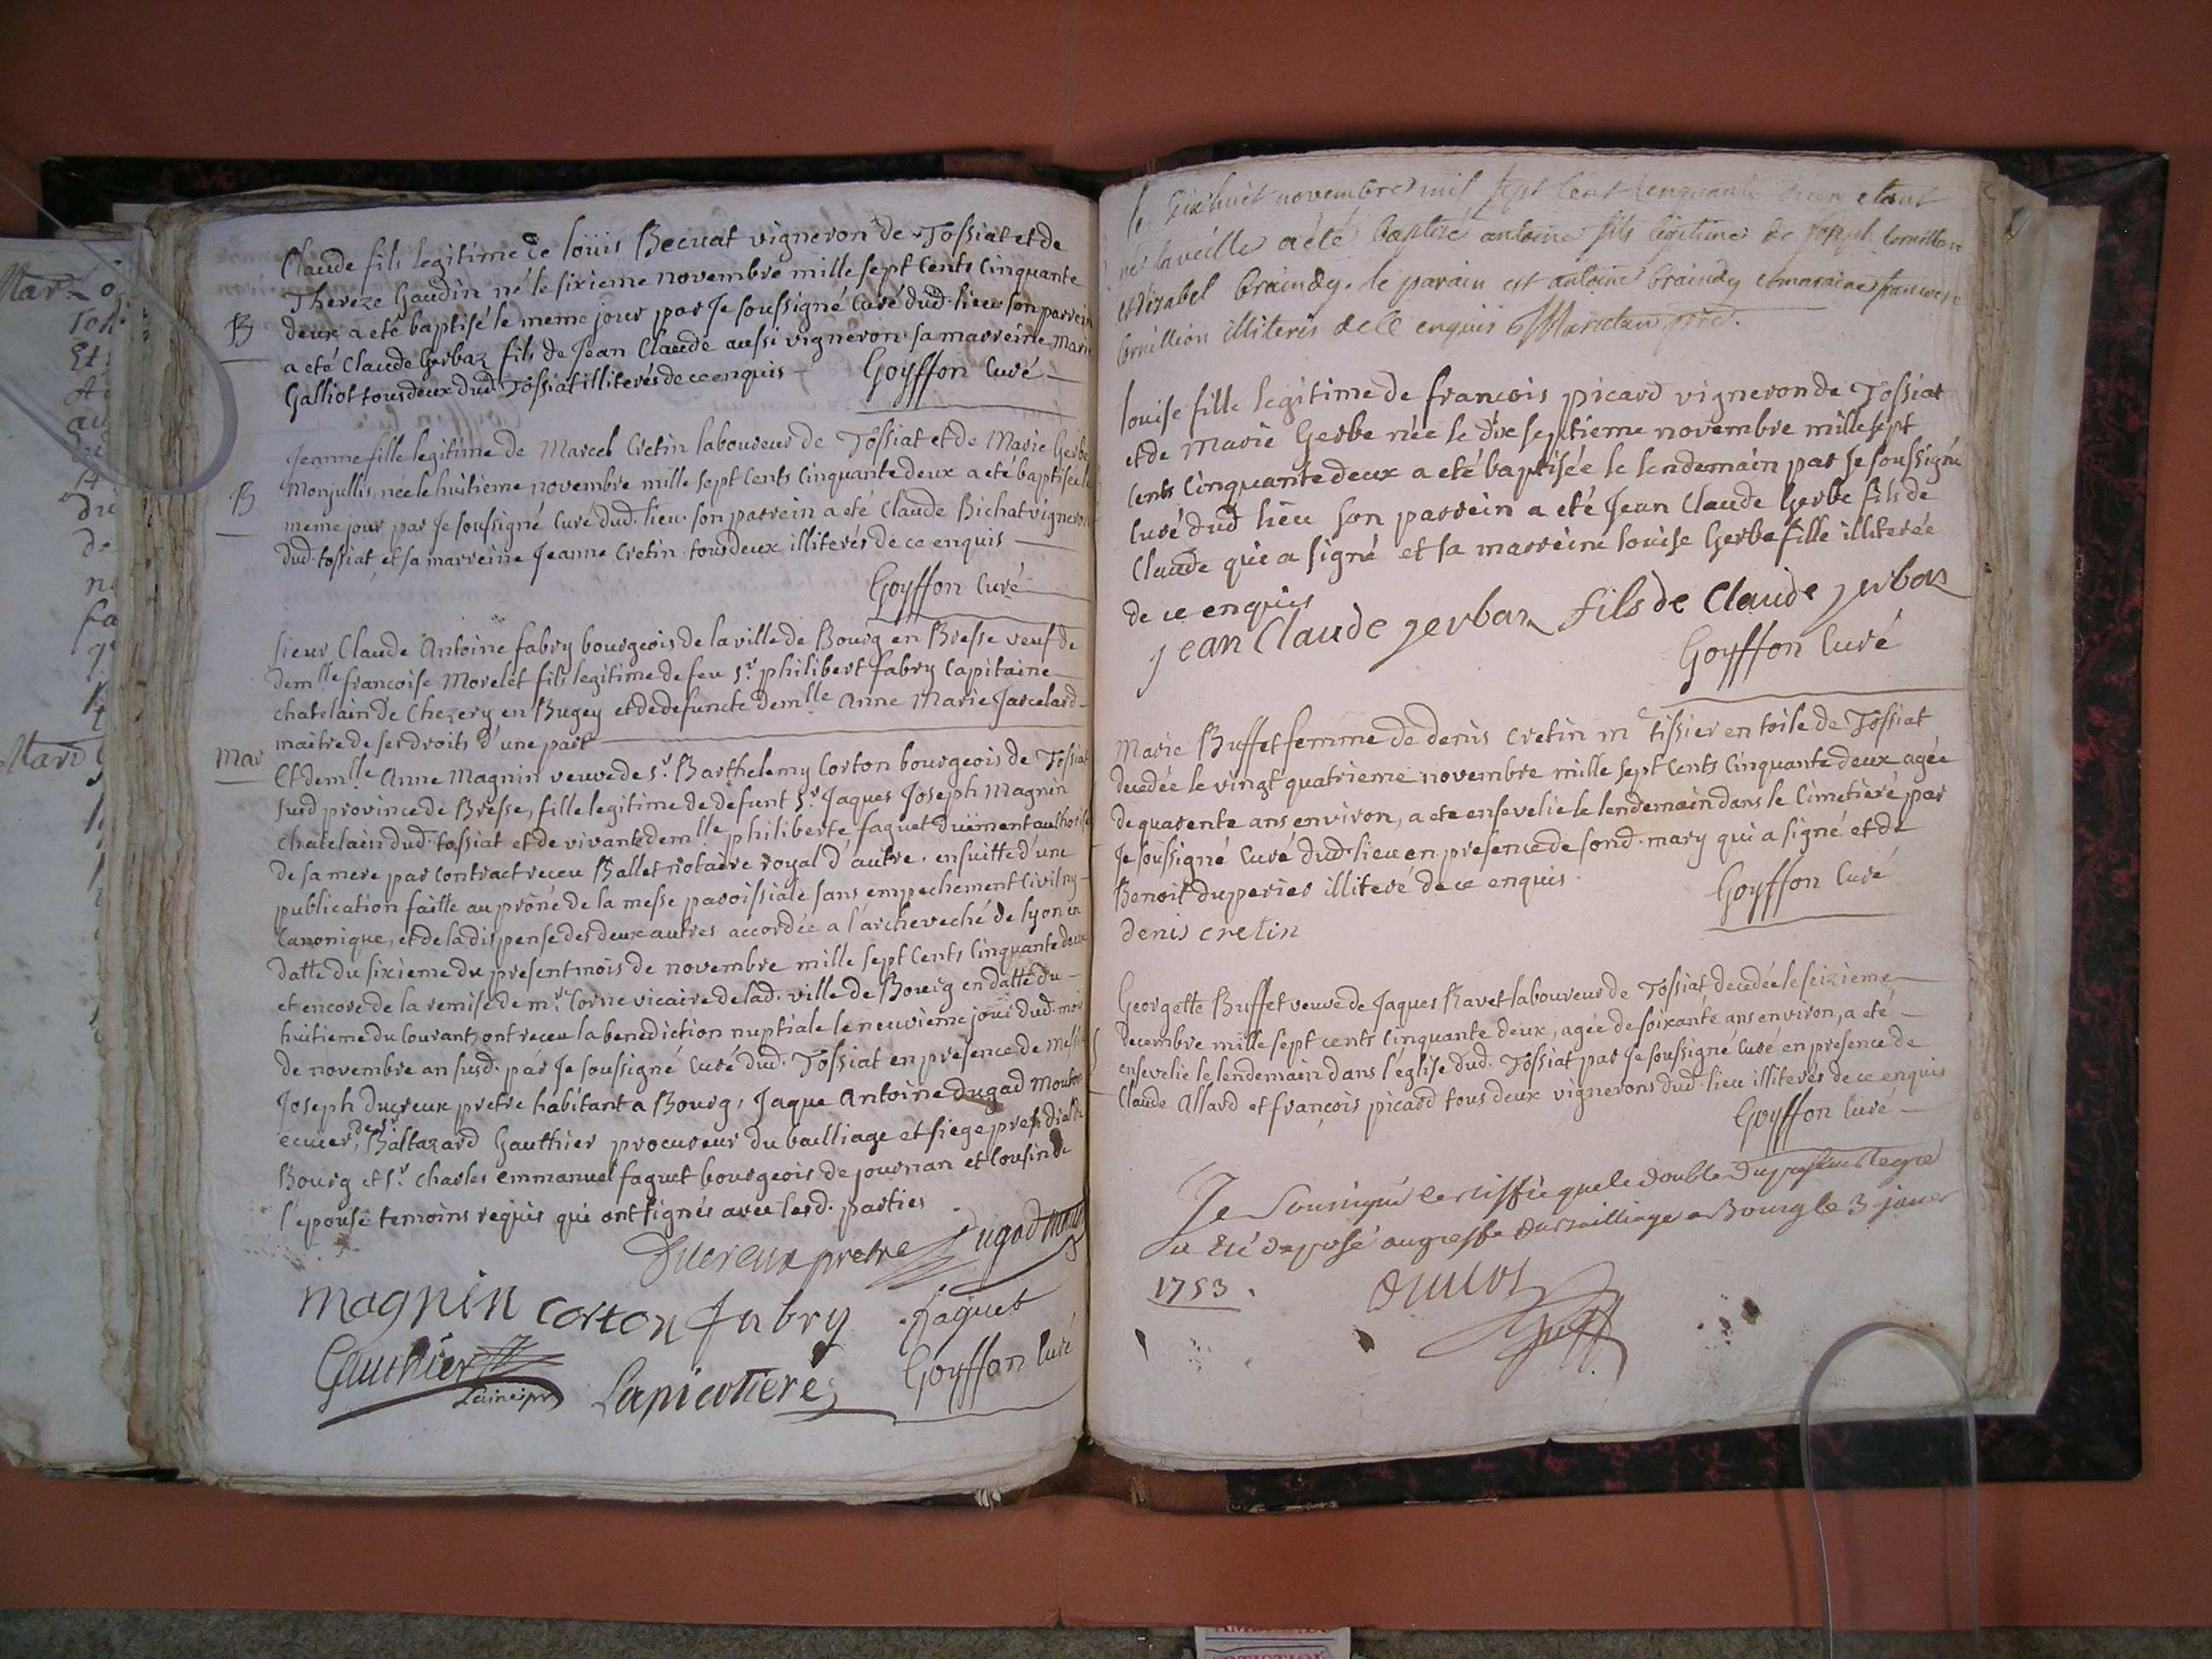 Claude fils legitime de loüis Becuat vigneron de Tossiat et de
Thereze Gaudin né le sixieme novembre mille sept Cents Cinquante
B
deux a eté baptisé le meme jour par Je soussigné Curé dud. lieu son parrein
a eté Claude Gerbaz fils de Jean Claude aussi vigneron sa marreine Marie
Galliot tous deux dud Tossiat illiterés de ce enquis Goyffon Curé
Jeanne fille legitime de Marcel Cretin laboureur de Tossiat et de Marie Gerbe
B
Monjullis, née le huitieme novembre mille sept Cents Cinquante deux a eté baptisée le
meme jour par Je soussigné Curé dud. lieu. son parrein a eté Claude Bichat vigneron
dud. tossiat, et sa marreine Jeanne Cretin tous deux illiterés de ce enquis
Goyffon Curé
Sieur Claude Antoine fabry bourgeois de la ville de Bourg en Bresse veuf de
demlle francoise Morelet fils legitime de feu Sr. philibert fabry Capitaine
chatelain de Chezery en Bugey et de defuncte demlle Anne Marie Jarcelard
maitre de ses droits d'une part
Mar
Et demlle Anne Magnin veuve de Sr. Barthelemy Corton bourgeois de Tossiat
susd province de Bresse, fille legitime de defunt Sr Jaques Joseph Magnin
chatelain dud. tossiat et de vivante demlle philiberte faguet düement authorisé
de sa mere par Contract receu Ballet notaire royal d'autre. ensuitte d'une
publication faitte au prône de la messe paroissiale sans empechement Civil ny
Canonique, et de la dispense des deux autres accordée a l'archeveché de lyon en
datte du sixieme du present mois de novembre mille sept Cents Cinquante deux
et encore de la remise de mr. Corne vicaire de lad. ville de Bourg en datte du
huitieme du Courant, ont receu la benediction nuptiale le neuvieme jour dud. mois
de novembre an susd. par Je soussigné Curé dud. Tossiat en presence de messire
Joseph ducreux pretre habitant a Bourg, Jaque Antoine dugad Mouton
ecuier, de Sr Baltazard Gauthier procureur du bailliage et siege presidial de
Bourg et Sr. Charles emmanuel faguet bourgeois de journan et Cousin de
l'epouse temoins requis qui ont signés avec lesd. parties
Ducreux pretre Dugad Mouton
magnin Corton fabry faguet
Gauthier Lapicotiere Goyffon Curé
dix huit novembre mil sept Cent Cinquante deux etant
né la veille a été baptisé antoine fils legitime de Joseph Cornillion
et d'izabel braindy. le parain est antoine braindy et maraine francoise
Cornillion illiteris de Ce enquis
louise fille legitime de francois picard vigneron de Tossiat
et de Marie Gerbe née le dix septieme novembre mille sept
Cents Cinquante deux a eté baptisée le lendemain par Je soussigné
Curé dud lieu son parrein a eté Jean Claude Gerbe fils de
Claude qui a signé et sa marreine louise Gerbe fille illiterée
de ce enquis
jean Claude gerbaz fils de Claude gerbaz
Goyffon Curé
Marie Buffet femme de denis Cretin me tissier en toile de Tossiat
decedée le vingt quatrieme novembre mille sept Cents Cinquante deux agée
de quarente ans environ, a ete ensevelie le lendemain dans le Cimetiere par
Je soussigné Curé dud. lieu en presence de sond. mary qui a signé et de
Benoit duperier illiteré de ce enquis
Goyffon Curé
denis cretin
Georgette Buffet veuve de Jaques Ravet laboureur de Tossiat decedée le seizieme
decembre mille sept cents Cinquante deux, agée de soixante ans environ, a eté
ensevelie le lendemain dans l'église dud. Tossiat par Je soussigné Curé en presence de
Claude Allard et françois picard tous deux vignerons dud. lieu illiterés de ce enquis
Goyffon Curé
Je Soussigné Certiffie que le double du present Regre
a Eté deposé au greffe du Bailliage a Bourg le 3 janer
1753.